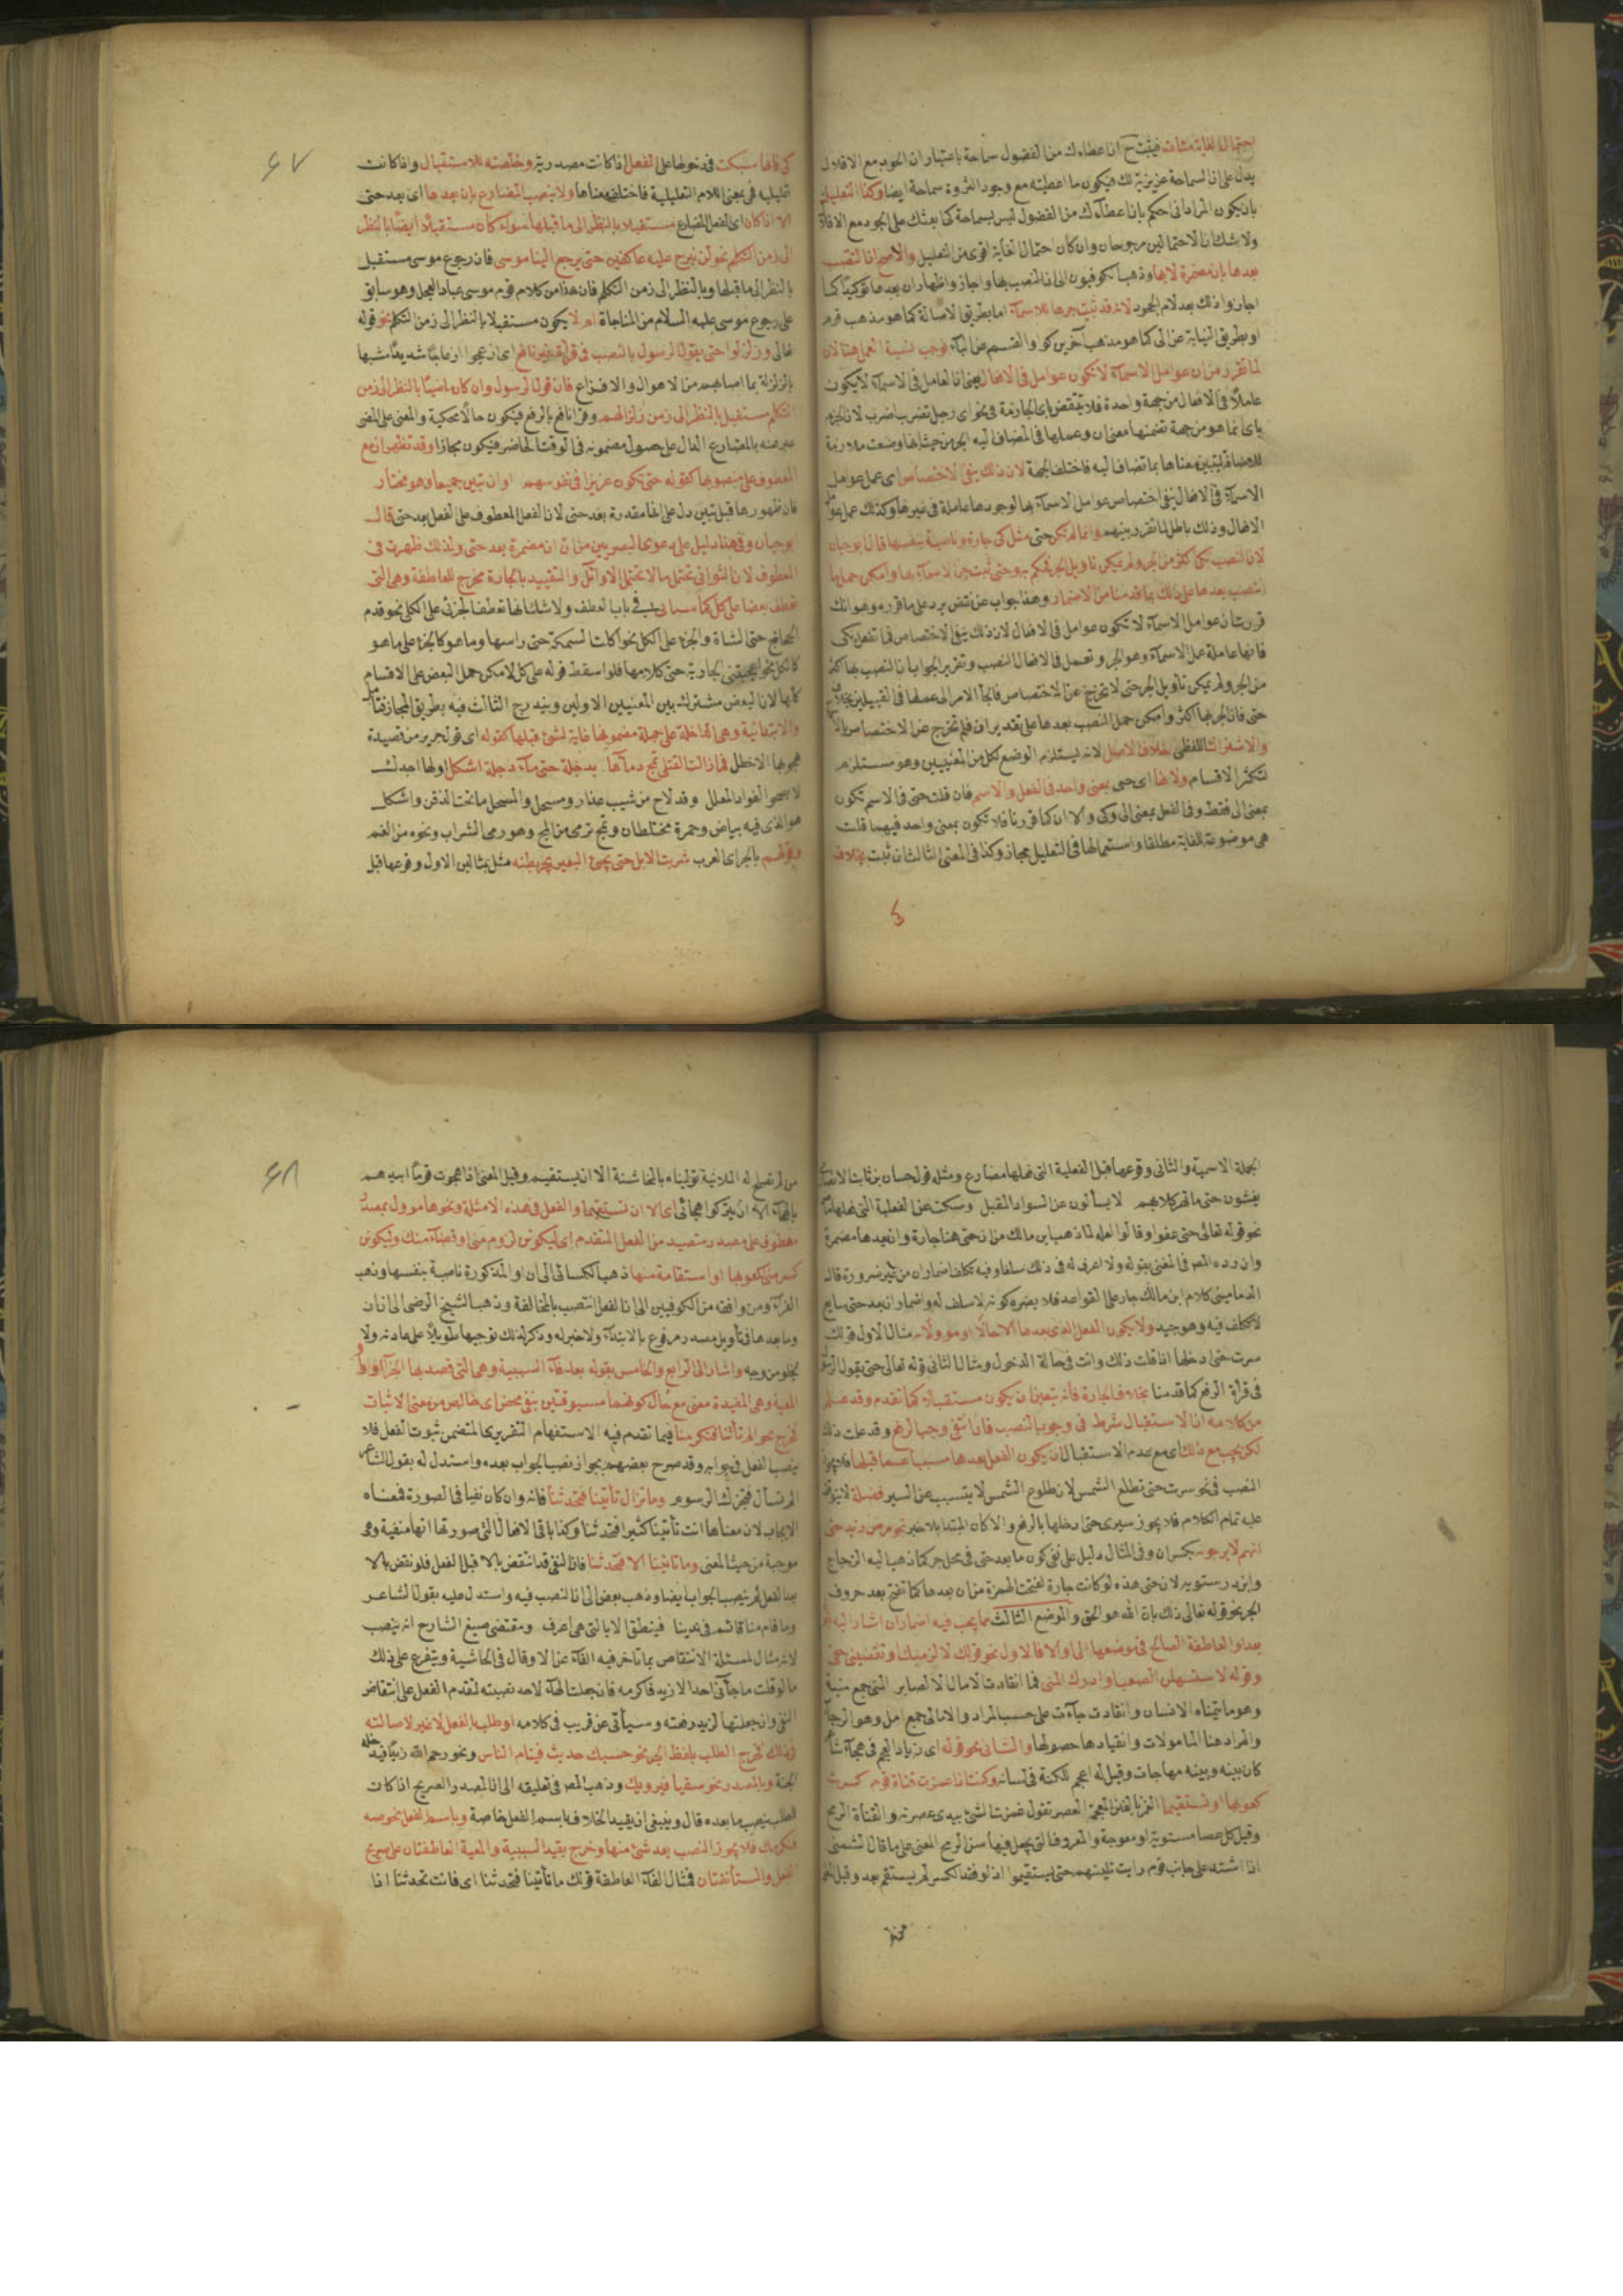 احتمال الغاية مثات فيثبت ح ان اعطاءك من الفضول سماحة باعتبار ان الجود مع الاقلال
يدل على ان السماحة عزيزية لك فيكون ما اعطيته مع وجود الثروة سماحة ايضا وكذا التعليل
بان يكون المراد انى احكم بان اعطاءك من الفضول ليس بسماحة كى ابعثك على الجود مع الاقلال
ولا شك ان الاحتمالين مرجوحان وان كان احتمال الغاية اقوى من التعليل والاصح ان النصب
بعدها بان مضمرة لا بها وذهب الكوفيون الى ان النصب بها واجازوا اظهار ان بعدها توكيدا كما
اجازوا ذلك بعد لام الجحود لانه قد ثبت جرها للاسماء اما بطريق الاصالة كما هو مذهب قوم
او بطريق النيابة عن الى كما هو مذهب آخرين فوجب نسبة العمل هنا لان
لما تقرر من ان عوامل الاسماء لا تكون عوامل فى الافعال يعنى ان العامل فى الاسماء لا يكون
عاملا فى الافعال من جهة واحدة فلا ينتقض باى الجازمة فى نحو اى رجل تضرب اضرب لان الجزم
باى انما هو من جهة تضمنها معنى ان وعملها فى المضاف اليه الجر من حيث انها وضعت ملازمة
للاضافة ليتبين معناها بما تضاف اليه فاختلف الجهة لان ذلك ينفى الاختصاص اى عمل عوامل
الاسماء فى الافعال ينفى اختصاص عوامل الاسماء بها لوجودها عاملة فى غيرها وكذلك عمل عوامل
الافعال وذلك باطل لما تقرر بينهم وانما لم تكن حتى مثل كى جارة وناصبة بنفسها قال ابو حيان
لان النصب بكى اكثر من الجر ولم يمكن تاويل الجر فحكم به وحتى ثبت جر الاسماء بها وامكن حمل ما
انتصب بعدها على ذلك بما قدمنا من الاضمار وهذا جواب عن نقض يرد على ما قرره وهو انك
قررت ان عوامل الاسماء لا تكون عوامل فى الافعال لان ذلك ينفى الاختصاص فما تفعل بكى
فانها عاملة عمل الاسماء وهو الجر وتعمل فى الافعال النصب وتقرير الجواب ان النصب بها اكثر
من الجر ولم يمكن تاويل الجر حتى لا تخرج عن الاختصاص فالجأ الامر الى عملها فى القبيلين بخلاف
حتى فان الجر بها اكثر وامكن حمل النصب بعدها على تقدير ان فلم تخرج عن الاختصاص
والاشتراك اللفظى بخلاف الاصل لانه ليستلزم الوضع لكل من المعنيين وهو مستلزم
لتكثر الاقسام ولانها اى حتى بمعنى واحد فى الفعل والاسم فان قلت حتى فى الاسم تكون
بمعنى الى فقط وفى الفعل بمعنى الى وكى والا ان كما قررنا فلا تكون بمعنى واحد فيهما قلت
هى موضوعة للغاية مطلقا واستعمالها فى التعليل مجاز وكذا فى المعنى الثالث ان ثبت بخلاف
٦٧
كى فانها سبكت فى دخولها على الفعل اذا كانت مصدرية وخلصته للاستقبال واذا كانت
تعليليه فهى بمعنى اللام التعليلية فاختلف معناها ولا ينصب المضارع بان بعدها اى بعد حتى
الا اذا كان اى الفعل المضارع مستقبلا بالنظر الى ما قبلها سواء كان مستقبلا ايضا بالنظر
الى زمن التكلم نحو لن نبرح عليه عاكفين حتى يرجع الينا موسى فان رجوع موسى مستقبل
بالنظر الى ما قبلها وبالنظر الى زمن التكلم فان هذا من كلام قوم موسى عباد العجل وهو سابق
على رجوع موسى عليه السلام من المناجاة ام لا يكون مستقبلا بالنظر الى زمن التكلم نحو قوله
تعالى وزلزلوا حتى يقول الرسول بالنصب فى قراءة غير نافع اى ازعجوا ازعاجا شديدا مشبها
بالزلزلة بما اصابهم من الاهوال والافزاع فان قول الرسول وان كان ماضيا بالنظر الى زمن
التكلم مستقبل بالنظر الى زمن زلزالهم وقرا نافع بالرفع فيكون حالا محكية والمعنى على المضى
عبر عنه بالمضارع الدال على حصول مضمونه فى الوقت الحاضر فيكون مجازا وقد تظهر ان مع
المعطوف على منصوبها كقوله حتى تكون عزيزا فى نفوسهم او ان تبين جميعا وهو مختار
فان ظهورها قبل تبين دل على انها مقدرة بعد حتى لان الفعل المعطوف على الفعل بعد حتى قال
ابو حيان وفى هذا دليل على دعوى البصريين من ان ان مضمرة بعد حتى ولذلك ظهرت فى
المعطوف لان الثوانى تحتمل ما لا تحتمل الاوائل والتقييد بالجارة مخرج للعاطفة وهى التى
تعطف بعضا على كل كما سيأتى فى باب العطف ولا شك انها تعطف الجزئى على الكلى نحو قدم
الحجاج حتى المشاة والجزء على الكل نحو اكلت السمكة حتى راسها وما هو كالجزء على ما هو
كالكل نحو اعجبتنى الجارية حتى كلامها فلو اسقط قوله على كل لامكن حمل البعض على الاقسام
كلها لان البعض مشترك بين المعنيين الاولين ويندرج الثالث فيه بطريق المجاز فتامل
والابتدائية وهى الداخلة على جملة مضمونها غاية لشئ قبلها كقوله اى قول جرير من قصيدة
هجو بها الاخطل فما زالت القتلى تمج دماءها بدجلة حتى ماء دجلة اشكل اولها اجدك
لا يصحو الفواد المعلل وقد لاح من شيب عذار ومسحل والمسحل ما تحت الذقن واشكل
هو الذى فيه بياض وحمرة مختلطان وتمج ترمى من المج وهو رمى الشراب ونحوه من الفم
وقولهم بالجر اى العرب شربت الابل حتى يجئ البعير يجر بطنه مثل بمثالين الاول وقوعها قبل
الجملة الاسمية والثانى وقوعها قبل الفعلية التى فعلها مضارع ومثله قول حسان بن ثابت الانصارى
يغشون حتى ما تهر كلابهم لا يسألون عن السواد المقبل وسكت عن الفعلية التى فعلها ماض
نحو قوله تعالى حتى عفوا وقالوا لعله لما ذهب ابن مالك من ان حتى هنا جارة وان بعدها مضمرة
وان رده المص فى المغنى بقوله ولا اعرف له فى ذلك سلفا وفيه تكلف اضمار ان من غير ضرورة قال
الدمامينى كلام ابن مالك جار على القواعد فلا يضره كونه لا سلف له واضمار ان بعد حتى سايغ
لا تكلف فيه وهو جيد ولا يكون الفعل الذى بعدها الا حالا او مؤولا به مثال الاول قولك
سرت حتى ادخلها اذا قلت ذلك وانت فى حالة الدخول ومثال الثانى قوله تعالى حتى يقول الرسول
فى قراءة الرفع كما قدمنا بخلاف الجارة فانه يتعين ان يكون مستقبلا كما تقدم وقد علم
من كلامه ان الاستقبال شرط فى وجوب النصب فان انتفى وجب الرفع وقد علمت ذلك
لكن يجب مع ذلك اى مع عدم الاستقبال ان يكون الفعل بعدها مسببا عما قبلها فلا يجوز
النصب فى نحو سرت حتى تطلع الشمس لان طلوع الشمس لا يتسبب عن السير فضلة لا يتوقف
عليه تمام الكلام فلا يجوز سيرى حتى ادخلها بالرفع والا كان المبتدا بلا خبر نحو مرض زيد حتى
انهم لا يرجونه بكسر ان وفى المثال دليل على نفى كون ما بعد حتى فى محل جر كما ذهب اليه الزجاج
وابن درستويه لان حتى هذه لو كانت جارة لفتحت الهمزة من ان بعدها كما تفتح بعد حروف
الجر نحو قوله تعالى ذلك بان الله هو الحق والموضع الثالث مما يجب فيه اضمار ان اشار اليه
بعد او العاطفة الصالح فى موضعها الى او الا فالاول نحو قولك لالزمنك او تقضينى حقى
وقوله لاستسهلن الصعب او ادرك المنى فما انقادت الامال الا لصابر المنى جمع منية
وهو ما يتمناه الانسان وانقادت جاءت على حسب المراد والامال جمع امل وهو الرجاء
والمراد هنا المامولات وانقيادها حصولها والثانى نحو قوله اى زياد الاعجم فى هجاء شاعر
كان بينه وبينه مهاجات وقيل له اعجم للكنة فى لسانه وكنت اذا غمزت قناة قوم كسرت
كعوبها او تستقيما الغمز بالغين المعجمة العصر تقول غمزت الشئ بيدى عصرته والقناة الرمح
وقيل كل عصا مستوية او معوجة والمعروف التى يجعل فيها سن الرمح المعنى على ما قال الشمنى
اذا اشتد على جانب قوم رايت تليينهم حتى يستقيموا اذ لو فقد الكسر لم يستقم بعد وقيل
٦٨
من لم تصلح له الملاينة توليناه بالمخاشنة الا ان يستقيم وقيل المعنى اذا هجوت قوما ابيدهم
بالهجاء الا ان يتركوا هجائى اى الا ان تستقيما والفعل فى هذه الامثلة ونحوها مؤول بمصدر
معطوف على مصدر متصيد من الفعل المتقدم اى ليكونن لزوم منى او قضاء منك وليكونن
كسر منى لكعوبها او استقامة منها ذهب الكسائى الى ان او المذكورة ناصبة بنفسها وذهب
الفراء ومن وافقه من الكوفيين الى ان الفعل انتصب بالمخالفة وذهب الشيخ الرضى الى ان ان
وما بعدها فى تأويل مصدر مرفوع بالابتداء ولا خبر له وذكر لذلك توجيها طويلا على عادته ولا
يخلو من وجه واشار الى الرابع والخامس بقوله بعد فاء السببية وهى التى قصد بها الجزاء او واو
المعية وهى المفيدة معنى مع حال كونهما مسبوقتين بنفى محض اى خالص من معنى الاثبات
فخرج نحو الم تأتنا فنكرمنا فيما تقدم فيه الاستفهام التقريرى المتضمن ثبوت الفعل فلا
ينصب الفعل فى جوابه وقد صرح بعضهم بجواز نصب الجواب بعده واستدل له بقول الشاعر
الم تسأل فتخبرك الرسوم وما تزال تأتينا فتحدثنا فانه وان كان نفيا فى الصورة فمعناه
الايجاب لان معناها انت تأتينا كثيرا فتحدثنا وكذا باقى الافعال التى صورتها انها منفية وهى
موجبة من حيث المعنى وما تاتينا الا فتحدثنا فان النفى قد انتقض بالا قبل الفعل فلو نقض بالا
بعد الفعل لم ينصب الجواب ايضا وذهب بعض الى ان النصب فيه واستدل عليه بقول الشاعر
وما قام منا قائم فى ندينا فينطق الا بالتى هى اعرف ومقتضى صنيع الشارح انه ينصب
لانه مثال لمسئلة الانتقاض بما تاخر فيه الفاء عن الا وقال فى الحاشية ويتفرع على ذلك
ما لو قلت ما جاءنى احد الا زيد فاكرمه فان جعلت الهاء لاحد نصبته لتقدم الفعل على انتقاض
النفى وان جعلتها لزيد رفعته وسيأتى عن قريب فى كلامه او طلب بالفعل لا غير لاصالته
فى ذلك فخرج الطلب بلفظ الخبر نحو حسبك حديث فينام الناس ونحو رحم الله زيدا فيدخله
الجنة وبالمصدر نحو سقيا فيرويك وذهب المص فى تعليقه الى ان المصدر الصريح اذا كان
للطلب ينصب ما بعده قال وينبغى ان يقيد الخلاف باسم الفعل خاصة وباسم الفعل نحو صه
فنكرمك فلا يجوز النصب بعد شئ منها وخرج بقيد السببية والمعية العاطفتان على صريح
الفعل والمستأنفتان فمثال الفاء العاطفة قولك ما تأتينا فتحدثنا اى فانت تحدثنا اذا